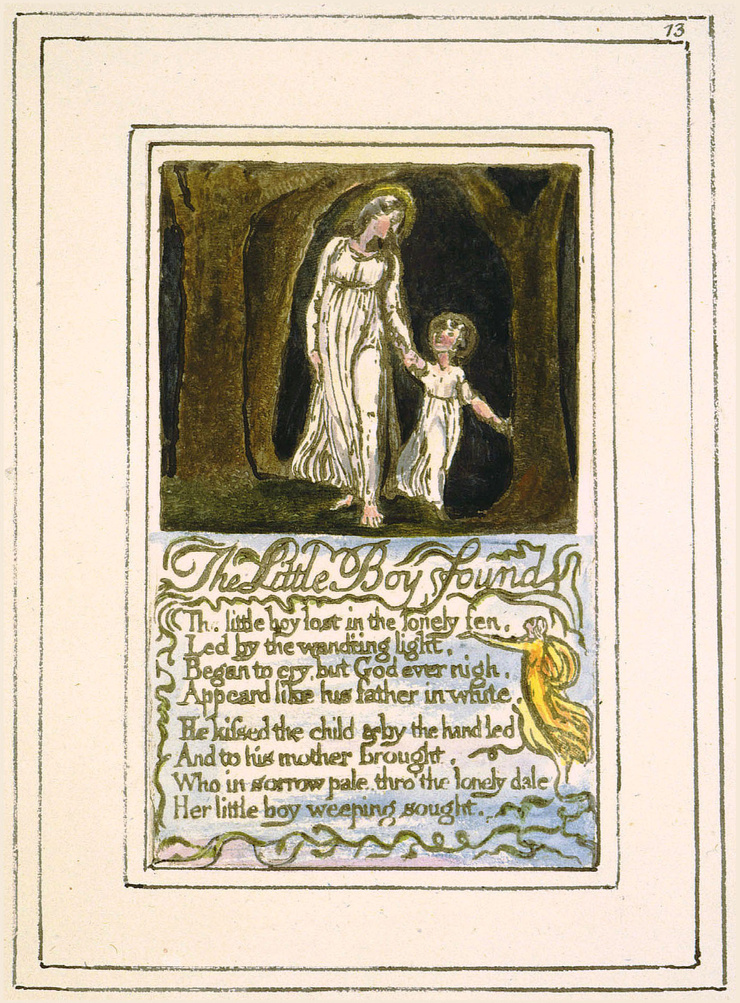 13
The Little Boy found
The little boy lost in the lonely fen,
Led by the wandring light,
Began to cry, but God ever nigh,
Appeard like his father in white,
He kissed the child & by the hand led
And to his mother brought,
Who in sorrow pale, thro' the lonely dale
Her little boy weeping sought.